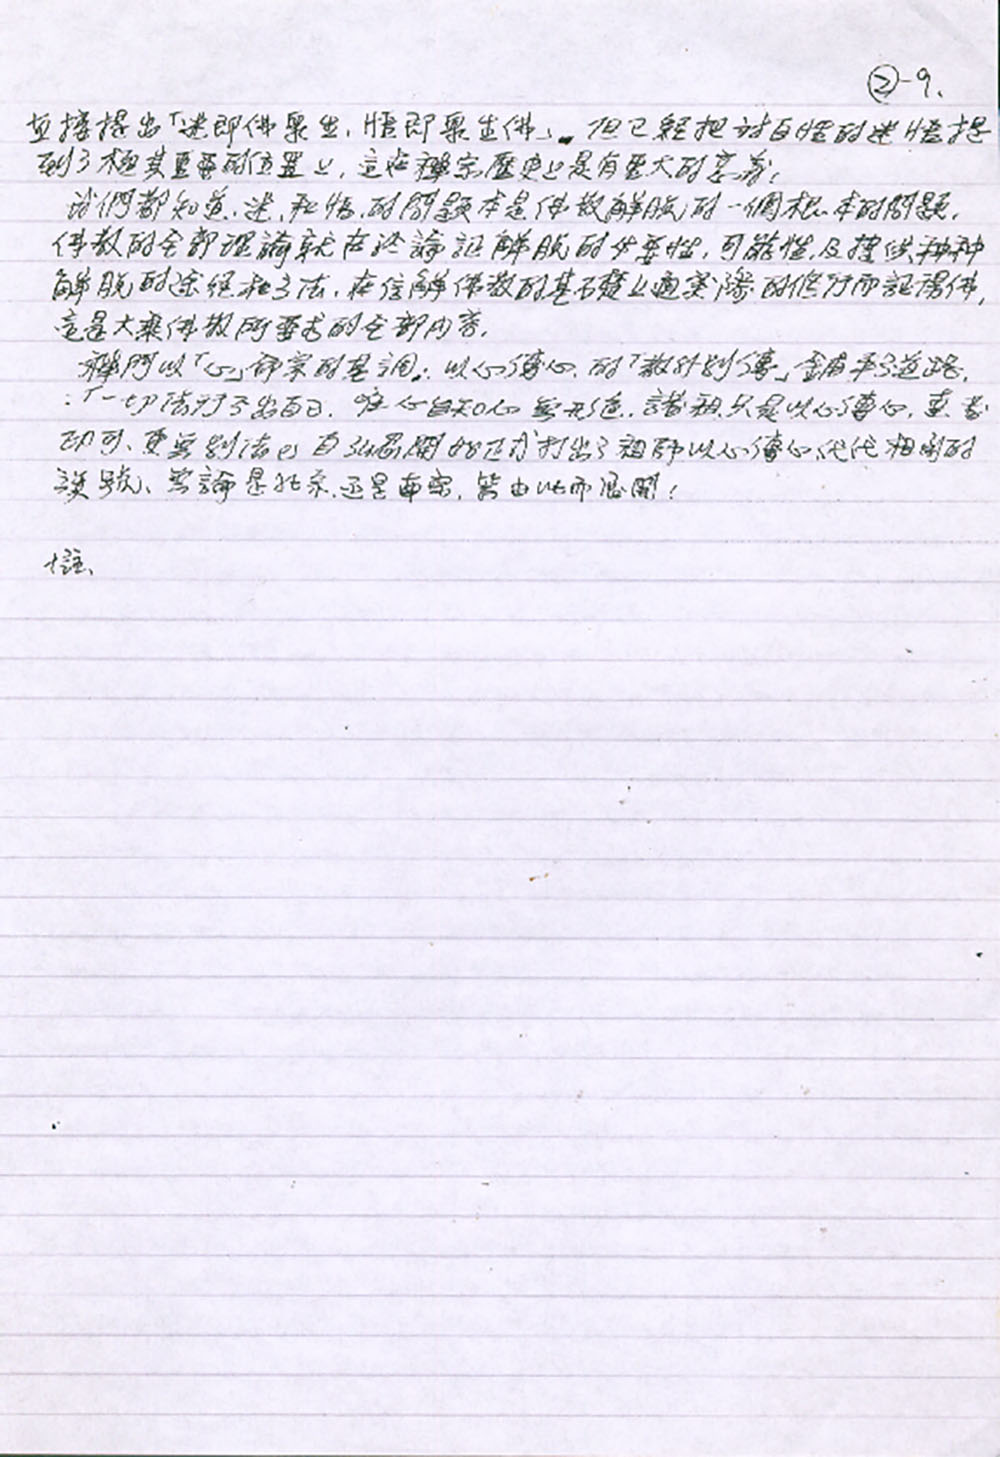 ②-9.
直接提出「迷即佛眾生,悟即眾生佛」。但已經把對自性的迷悟提
到了極其重要的位置上,這在禪宗歷史上是有重大的意義;
我們都知道、迷、和悟、的問題本是佛教解脫的一個根本的問題,
佛教的全部理論就在於論証解脫的必要性,可能性,及提供种种
解脫的途徑和方法,在信解佛教的基石礎上通實際的修行而証得佛,
這是大乘佛教所要求的全部內容,
禪門以「心」命宗的基調:以心傳心,的「教外別傳」鋪平了道路,
:「一切法行出自己,唯心自知心無形色,諸祖只是以心傳心,達者
印可、更無別法」自弘忍開始正式打出了祖師以心傳心代代相承的
旗號、無論是北宗,還是南宗,皆由此而展開;
註、